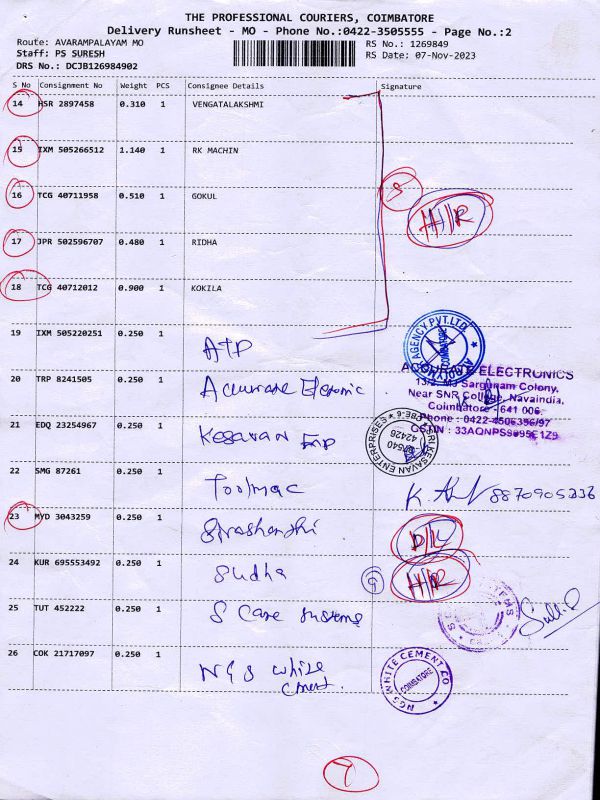 THE PROFESSIONAL COURIERS, COIMBATORE
Delivery Runsheet - MO - Phone No.:0422-3505555 - Page No.:2
Route: AVARAMPALAYAM MO
RS No.: 1269849
Staff: PS SURESH
RS Date: 07-Nov-2023
DRS No.: DCJB126984902
S No Consignment No Weight PCS Consignee Details Signature
14 HSR 2897458 0.310 1 VENGATALAKSHMI
15 IXM 505266512 1.140 1 RK MACHIN
16 TCG 40711958 0.510 1 GOKUL
17 JPR 502596707 0.480 1 RIDHA
18 TCG 40712012 0.900 1 KOKILA
5
H/R
19 IXM 505220251 0.250 1 ATP
AGENCY PVT.LTD.
COIMBATORE
20 TRP 8241505 0.250 1 Accurate Eleronic
ELECTRONICS
Sargunam Colony,
Near SNR College, Navaindia,
Coimbatore - 641 006.
Phone : 0422-4506396/97
21 EDQ 23254967 0.250 1 Kesavan Enp
KESAVAN ENTERPRISES
22 SMG 87261 0.250 1 Toolmac
8870905236
23 MYD 3043259 0.250 1
D/L
24 KUR 695553492 0.250 1 Sudha
6 H/R
25 TUT 452222 0.250 1 S Care Systems
26 COK 21717097 0.250 1 NGS white
cment.
NGS WHITE CEMENT CO
COIMBATORE
7